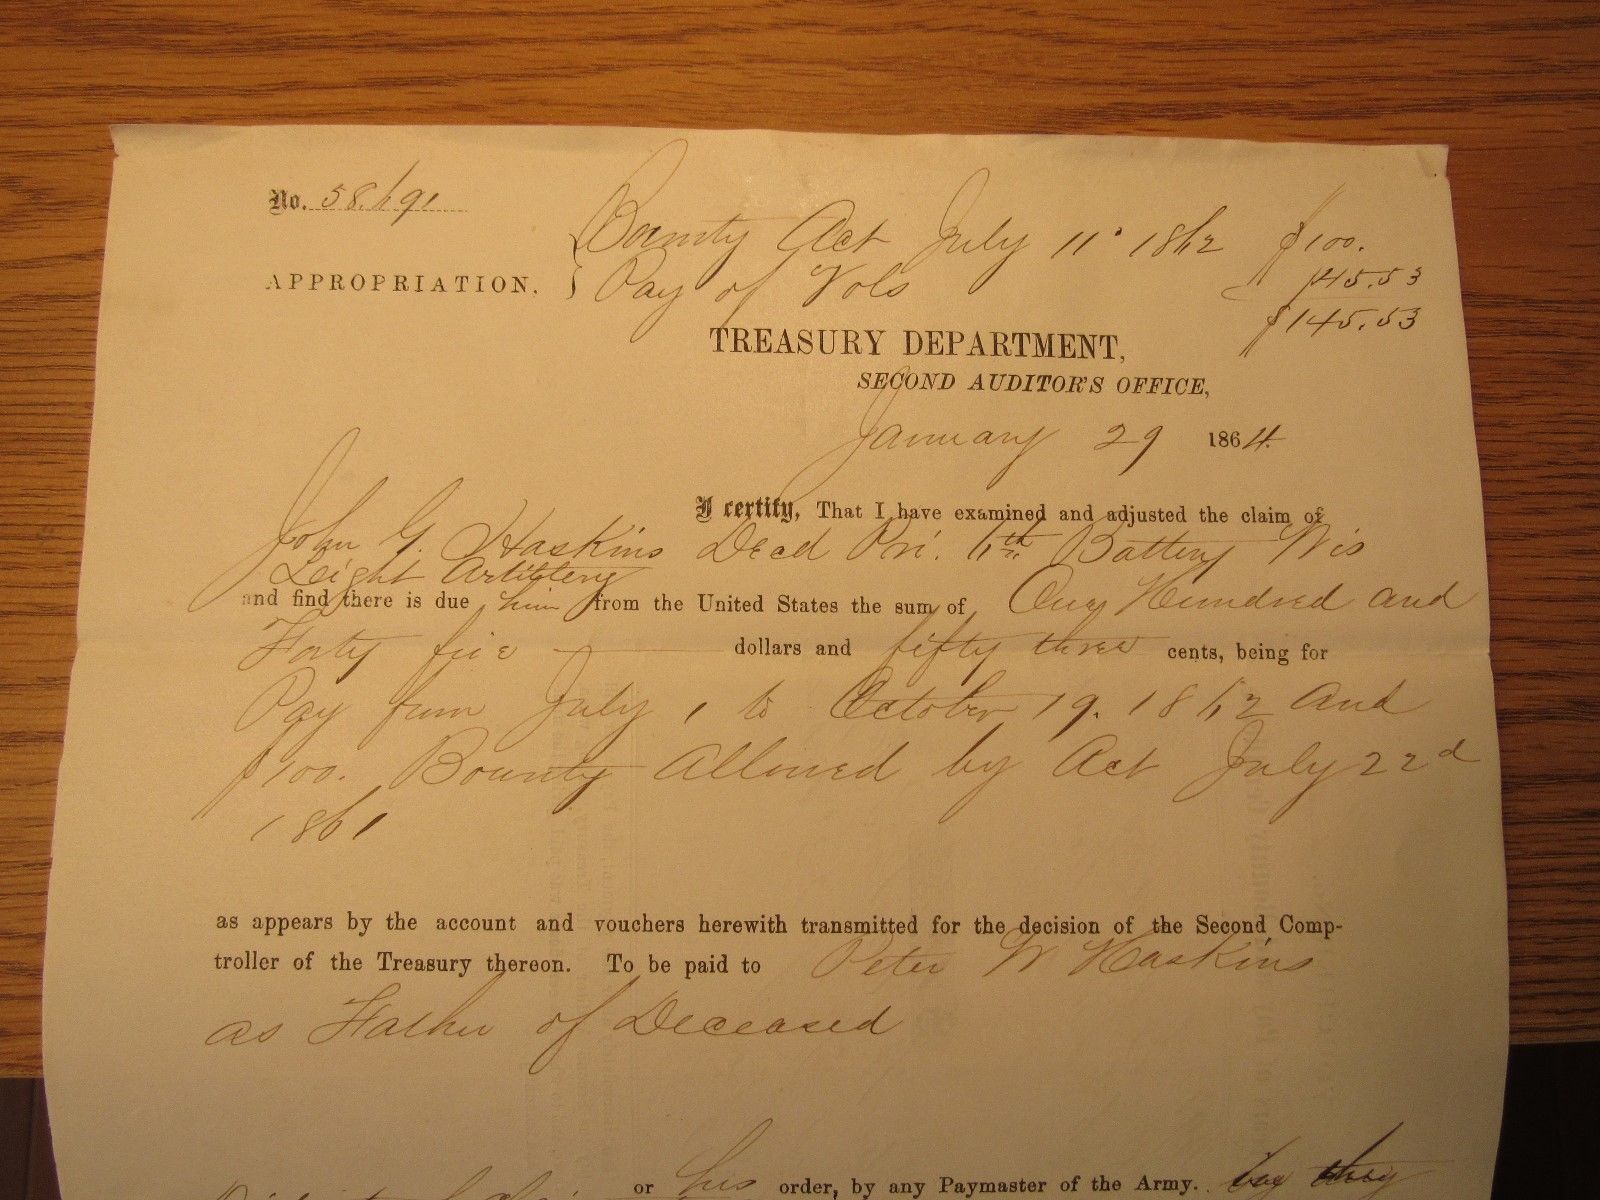 No. 58.691
Bounty Act July 11" 1862 $100.
APPROPRIATION. Pay of Vols 45.53
$145.53
TREASURY DEPARTMENT,
SECOND AUDITOR'S OFFICE,
January 29 1864.
I certify, That I have examined and adjusted the claim of
John G. Haskins Decd Pri. 6th Battery Wis
Light Artillery
and find there is due him from the United States the sum of One Hundred and
Forty five dollars and fifty three cents, being for
Pay from July 1 to October 19. 1862 and
$100. Bounty Allowed by Act July 22d
1861
as appears by the account and vouchers herewith transmitted for the decision of the Second Comp-
troller of the Treasury thereon. To be paid to Peter W Haskins
as Father of Deceased
or his order, by any Paymaster of the Army.